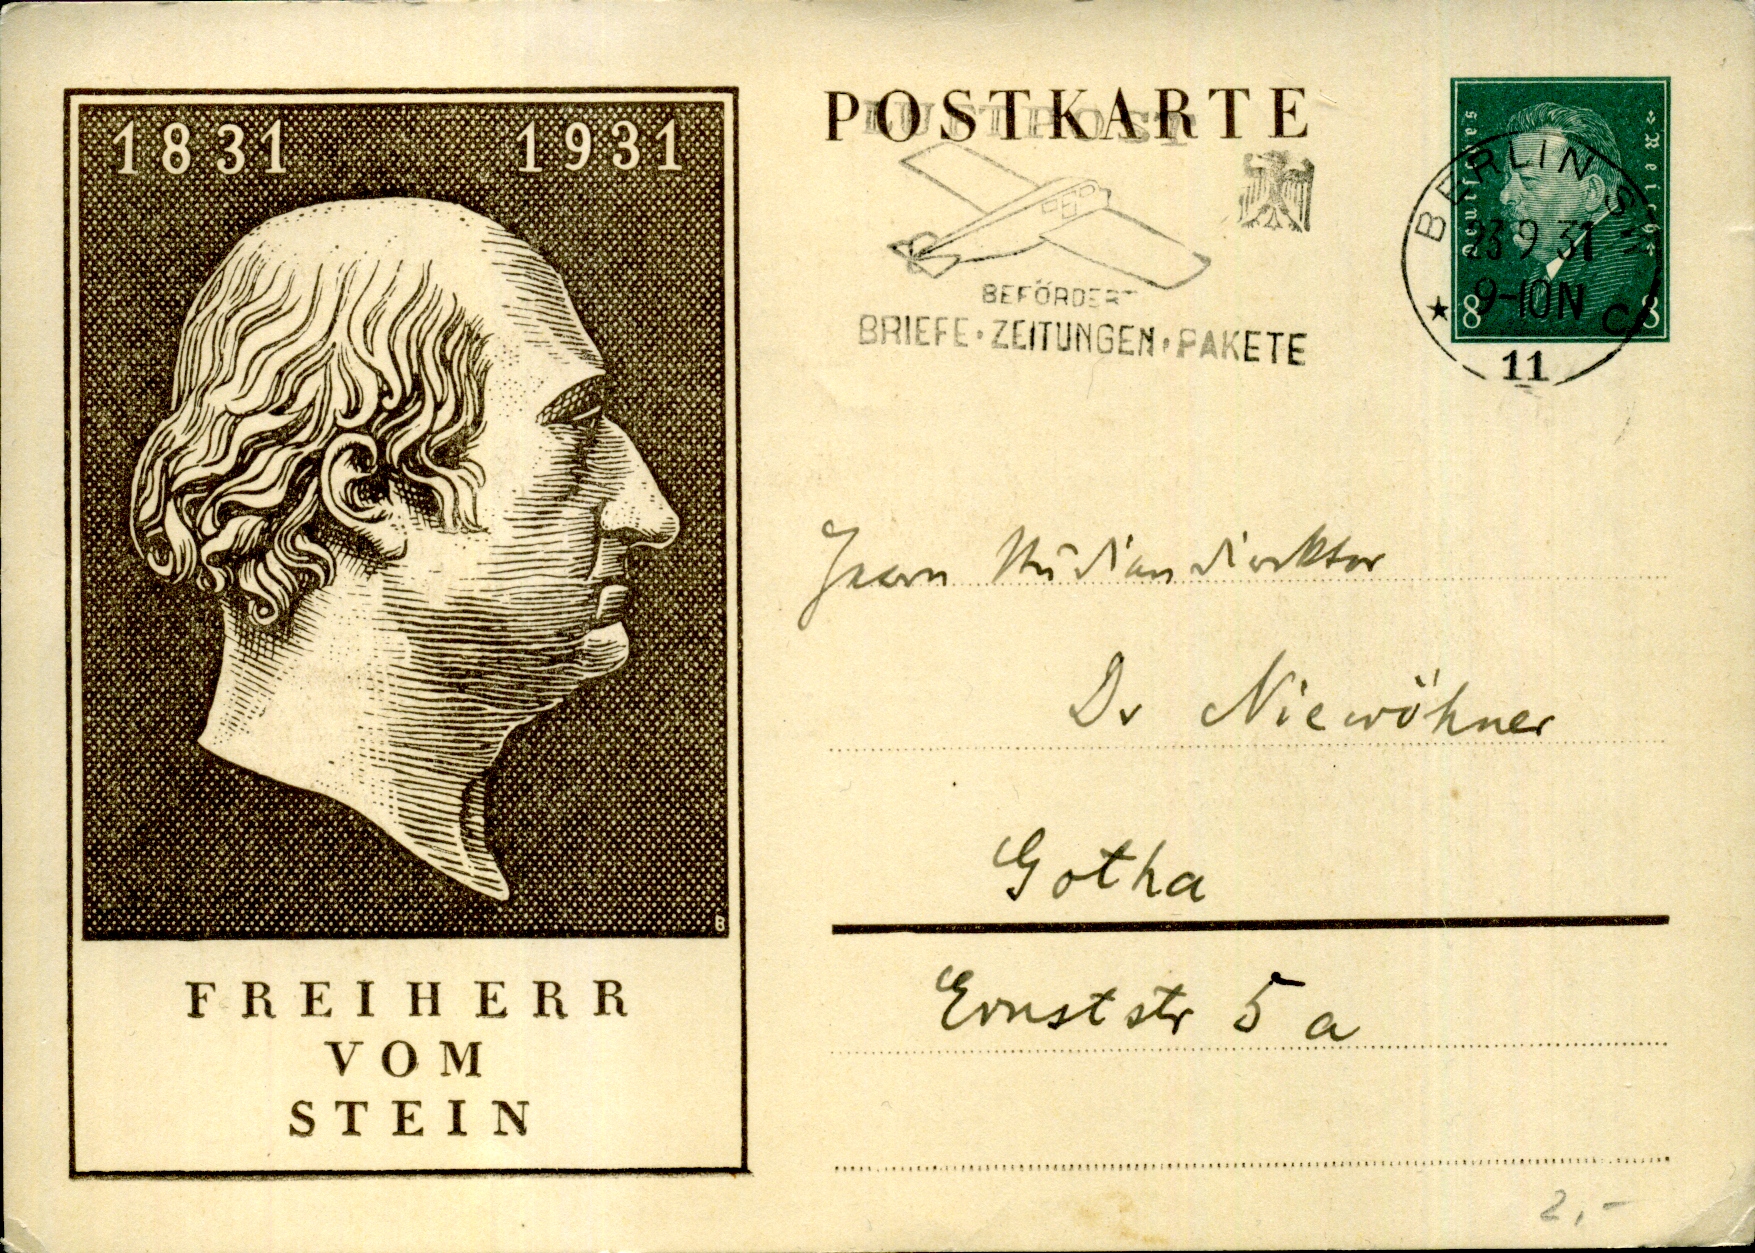 1831 1931
FREIHERR
VOM
STEIN
POSTKARTE
LUFTPOST
BEFÖRDERT
BRIEFE · ZEITUNGEN · PAKETE
Deutsches Reich
8 8
BERLIN SW
23.9.31
9-10N
★ C
11
B
Herrn Studiendirektor
Dr Niewöhner
Gotha
Ernststr 5a
2,-